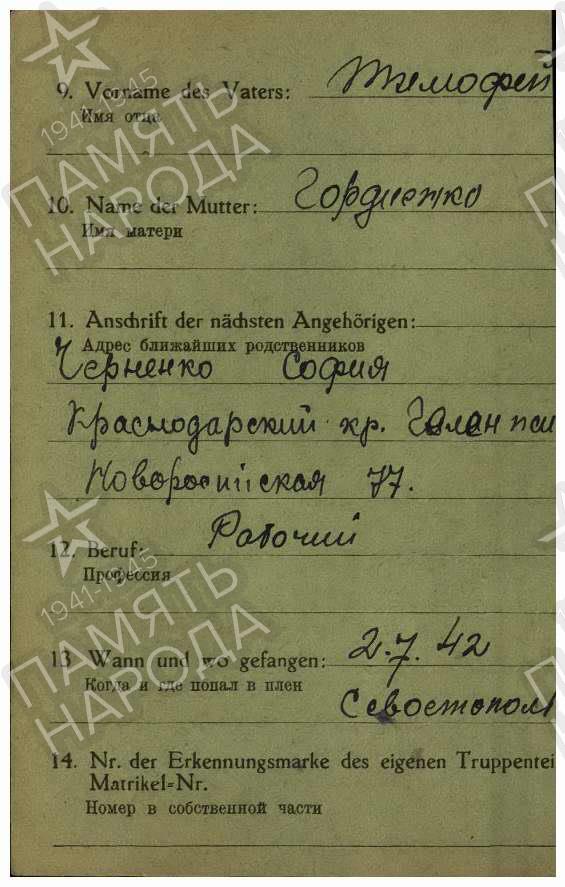 9. Vorname des Vaters: Тимофей
Имя отца
10. Name der Mutter: Гордиенко
Имя матери
11. Anschrift der nächsten Angehörigen:
Адрес ближайших родственников
Черненко София
Краснодарский кр.
Новоросийская 77.
12. Beruf: Рабочий
Профессия
13 Wann und wo gefangen: 2.7.42
Когда и где попал в плен
Севостопол
14. Nr. der Erkennungsmarke des eigenen Truppentei
Matrikel=Nr.
Номер в собственной части
1941-1945
ПАМЯТЬ
НАРОДА
1941-1945
ПАМЯТЬ
НАРОДА